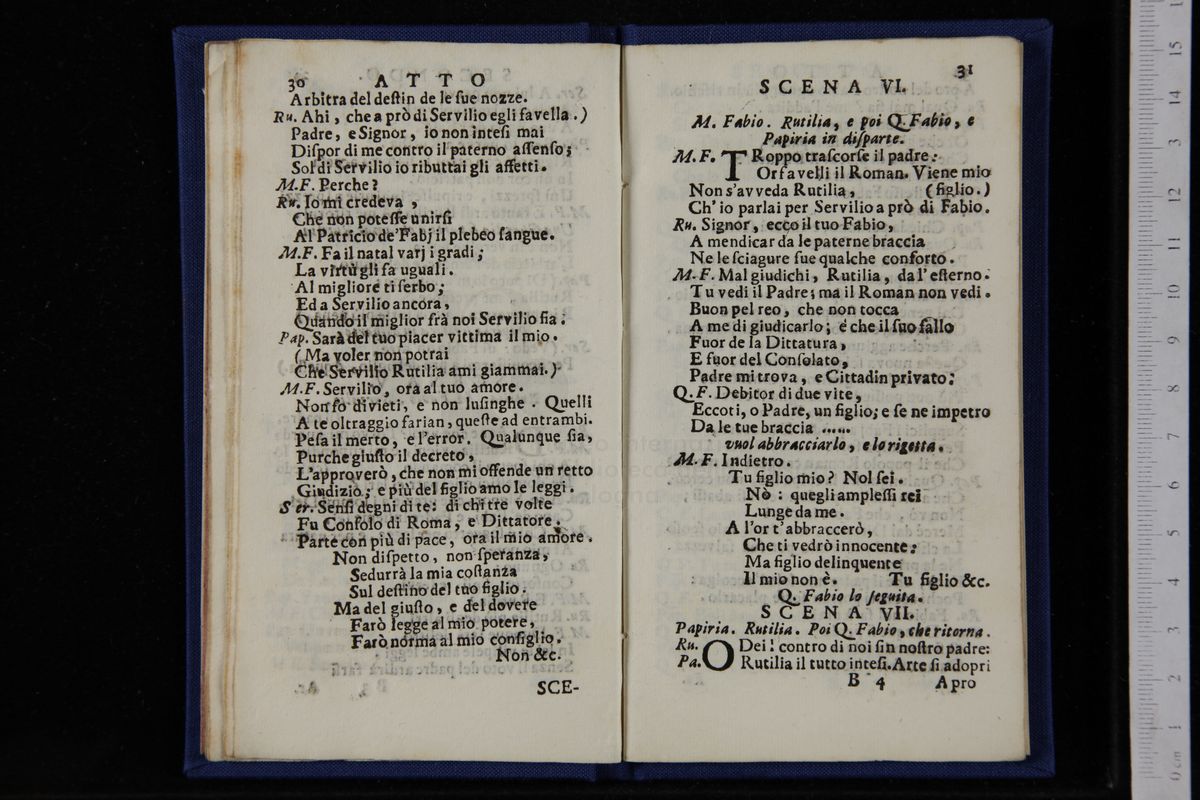 30 ATTO
Arbitra del deſtin de le ſue nozze.
Ru. Ahi, che a prò di Servilio egli favella.)
Padre, e Signor, io non inteſi mai
Diſpor di me contro il paterno aſſenſo;
Sol di Servilio io ributtai gli affetti.
M.F. Perche?
Ru. Io mi credeva,
Che non poteſſe unirſi
Al Patricio de' Fabj il plebeo ſangue.
M.F. Fa il natal varj i gradi;
La virtù gli fa uguali.
Al migliore ti ſerbo;
Ed a Servilio ancora,
Quando il miglior frà noi Servilio ſia.
Pap. Sarà del tuo piacer vittima il mio.
(Ma voler non potrai
Che Servilio Rutilia ami giammai.)
M.F. Servilio, ora al tuo amore.
Non fo divieti, e non luſinghe. Quelli
A te oltraggio farian, queſte ad entrambi.
Peſa il merto, e l'error. Qualunque ſia,
Purche giuſto il decreto,
L'approverò, che non mi offende un retto
Giudizio; e più del figlio amo le leggi.
Ser. Senſi degni di te: di chi tre volte
Fu Conſolo di Roma, e Dittatore.
Parte con più di pace, ora il mio amore.
Non diſpetto, non ſperanza,
Sedurrà la mia coſtanza
Sul deſtino del tuo figlio.
Ma del giuſto, e del dovere
Farò legge al mio potere,
Farò norma al mio conſiglio.
Non &c.
SCE-
31
SCENA VI.
M. Fabio. Rutilia, e poi Q. Fabio, e
Papiria in diſparte.
M.F. TRoppo traſcorſe il padre:
Or favelli il Roman. Viene mio
Non s'avveda Rutilia, (figlio.)
Ch' io parlai per Servilio a prò di Fabio.
Ru. Signor, ecco il tuo Fabio,
A mendicar da le paterne braccia
Ne le ſciagure ſue qualche conforto.
M.F. Mal giudichi, Rutilia, dal' eſterno.
Tu vedi il Padre; ma il Roman non vedi.
Buon pel reo, che non tocca
A me di giudicarlo; e che il ſuo fallo
Fuor de la Dittatura,
E fuor del Conſolato,
Padre mi trova, e Cittadin privato.
Q.F. Debitor di due vite,
Eccoti, o Padre, un figlio; e ſe ne impetro
Da le tue braccia ......
vuol abbracciarlo, e lo rigetta.
M.F. Indietro.
Tu figlio mio? Nol ſei.
Nò: quegli ampleſſi rei
Lunge da me.
A l'or t'abbraccerò,
Che ti vedrò innocente:
Ma figlio delinquente
Il mio non è. Tu figlio &c.
Q. Fabio lo ſeguita.
SCENA VII.
Papiria. Rutilia. Poi Q. Fabio, che ritorna.
Ru. O Dei! contro di noi ſin noſtro padre:
Pa. Rutilia il tutto inteſi. Arte ſi adopri
B 4 A pro